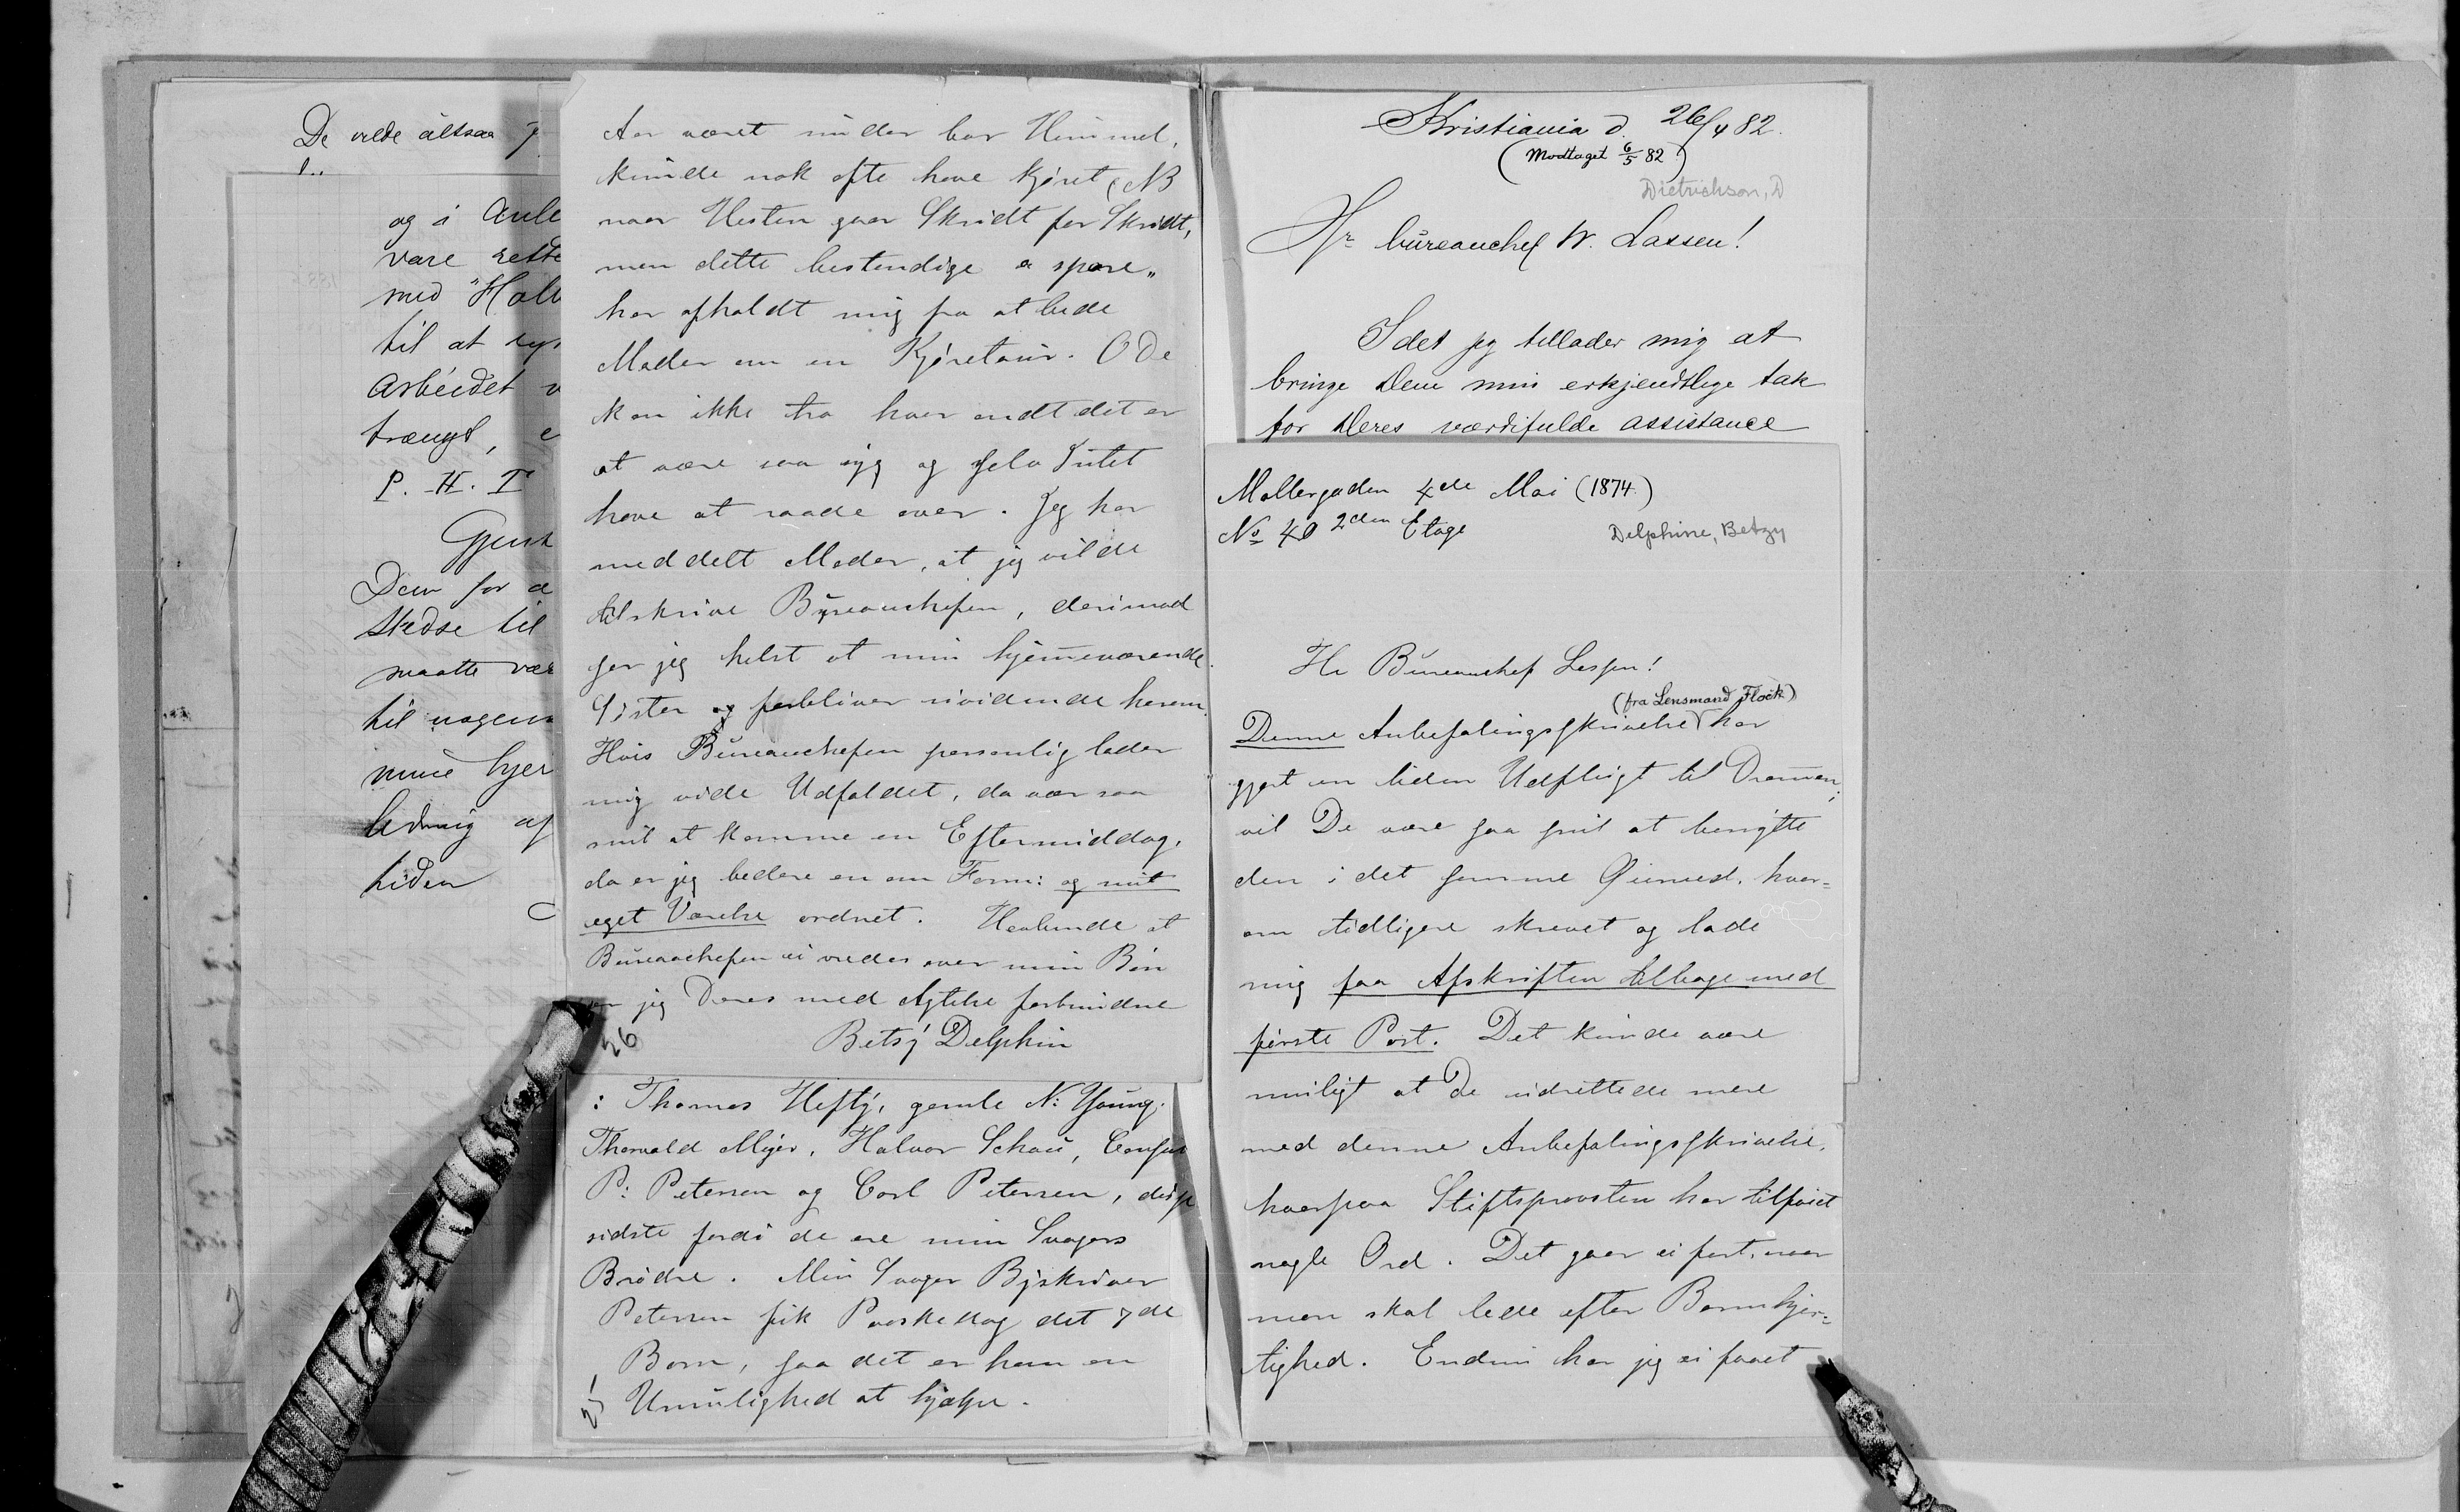 De vilde altsaa
og i
vare rette
med "Hall
til at
Arbeidet
trængt,
P. H. T
Gjen
Dem for
Skedse til
maatte vær
til nogen
mine hjer
ledning af
tiden
Aar været under bar Himmel,
kunde nok ofte have kjøret (NB
naar Hesten gaar Skridt for Skridt,
men dette bestendige "spare"
har afholdt mig fra at bede
Moder om en Kjøretour. O De
kan ikke tro hvor ondt det er
at være saa syg og selv Intet
have at raade over. Jeg har
meddelt Moder, at jeg vilde
tilskrive Bureauchefen, derimod
ser jeg helst at min hjemmeværende
Søster forbliver uvidende herom.
Hvis Bureauchefen personlig lader
mig vide Udfaldet, da vær saa
snil at komme en Eftermiddag,
da er jeg bedere en om Form: og mit
eget Værelse ordnet. Haabende at
Bureauchefen ei vredes over min Bøn
er jeg Deres med Agtelse forbundne
Betsy Delphin
26
: Thomas Heftÿ, gamle N: Young.
Thorvald Mejer, Halvor Schou, Consul
P: Petersen og Carl Petersen, disse
sidste fordi de ere min Svogers
Brødre. Min Svoger Byskriver
Petersen fik Paaskedag det 7de
Barn, saa det er ham en
Umulighed at hjælpe.
Kristiania d. 26/4 82.
(Modtaget 6/5 82)
Dietrichson, D
Hr bureauchef W. Lassen!
Idet jeg tillader mig at
bringe Dem min erkjendtlige tak
for Deres værdifulde assistance
Møllergaden 4de Mai (1874)
No 40 2den Etage
Delphine, Betzy
Hr Bureauchef Lassen!
(fra Lensmand Flock)
Denne Anbefalingsskrivelse har
gjort en liden Udflugt til Drammen,
vil De være saa snil at benytte
den i det samme Øiemed, hvor=
om tidligere skrevet og lade
mig faa Afskriften tilbage med
første Post. Det kunde være
muligt at De udrettede mere
med denne Anbefalingsskrivelse,
hvorpaa Stiftsprovsten har tilføiet
nogle Ord. Det gaar ei fort, naar
man skal lede efter Barmhjer=
tighed. Endnu har jeg ei faaet